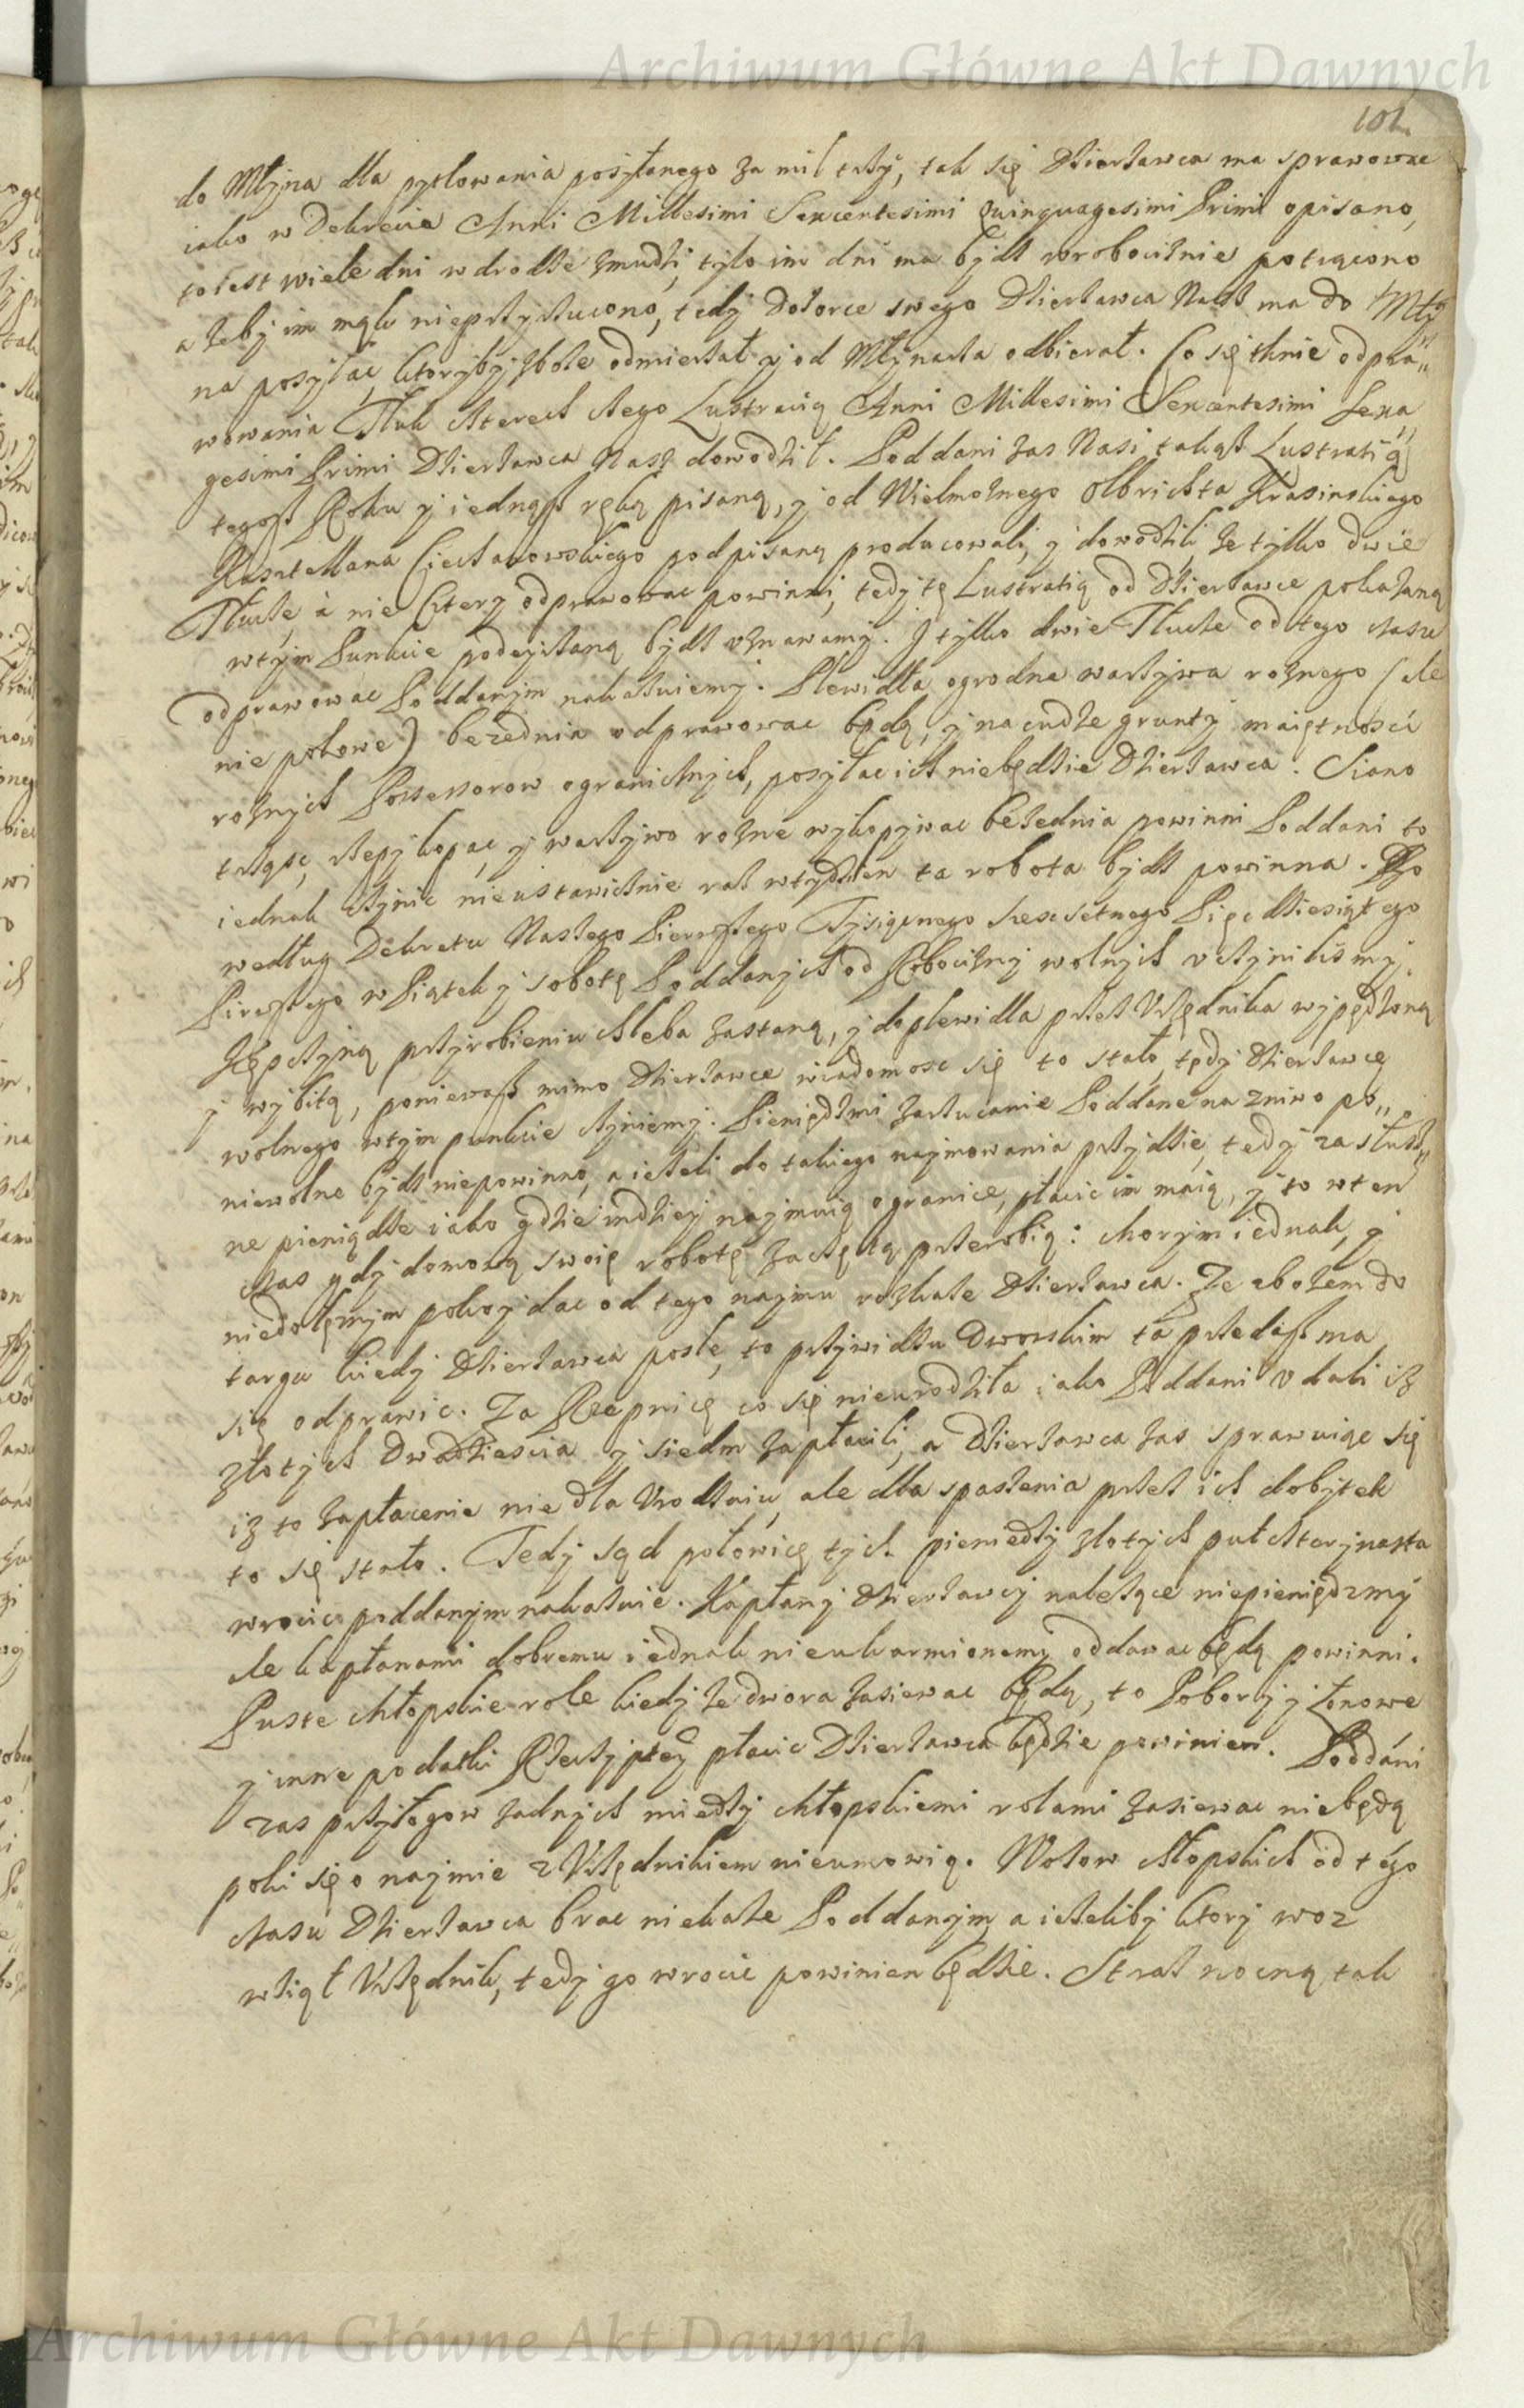 Archiwum Główne Akt Dawnych
101.
do Młyna dla pytlowania posyłanego za mil trzy, tak się Dzierzawca ma sprawowac
iako w Dekrecie Anni Millesimi Sexcentesimi Quinquagesimi Primi opisano,
to iest wiele dni w drodze zmudzi, tylo im dni ma bydz w robociznie potrącono
a zeby im mąk nieprzyrzucono, tedy Dozorce swego Dzierzawca Nasz ma do Mły„
na posyłac, ktoryby zboze odmierzał y od Młynarza odbierał. Co się tknie odpra„
wowania Tłuk czterech czego Lustracią Anni Millesimi Sexcentesimi Sexa„
gesimi Primi Dzierzawca Nasz dowodził. Poddani zas Nasi takąsz Lustratią
tegosz Roku y iednąsz ręką pisaną, y od Wielmoznego Olbrichta Krasinskiego
Kasztellana Ciechanowskiego podpisaną producowali, y dowodzili, ze tylko dwie
Tłuche a nie cztery odprawowac powinni, tedy tę Lustratią od Dzierzawce pokazaną
w tym Punkcie podeyrzaną bydz uznawamy. I tylko dwie Tłuche od tego czasu
odprawowac Poddanym nakazuiemy. Plewidła ogrodne warzywa roznego (ale
nie polowe) beze dnia odprawowac będą, y na cudze grunty maiętnosci
roznych Possessorow ogranicznych, posyłac ich niebędzie Dzierzawca. Siano
trząsc, rzepy kopac, y warzywo rozne wykopywac beze dnia powinni Poddani to
iednak czynic nieustawicznie raz w tydzien ta robota bydz powinna. A to
według Dekretu Naszego Pierwszego Tysiącnego szescsetnego Pięcdziesiątego
Pirwszego w Piątek y sobotę Poddanych od Robocizny wolnych uczynilismy.
Zępczyną przy robieniu chleba zastaną, y do plewidla przez Urzędnika wypędzoną
y wybitą, poniewasz mimo Dzierzawce wiadomosc się to stało, tedy Dzierzawcę
wolnego w tym punkcie czyniemy. Pieniędzmi zarzucanie Poddane na zniwo po„
niewolne bydz niepowinno, a iezeli do takiego naymowania przydzie, tedy zasłuzo„
ne pieniądze iako gdzie indziey naymuią ogranice, płacic im maią, y to w ten
czas gdy domową swoię robotę zaczętą przerobią: chorym iednak, y
niedołęznym pokoy dac od tego naymu rozkaze Dzierzawca. Ze zbozem do
targu kiedy Dzierzawca posle, to przy widzu Dworskim ta przedasz ma
się odprawic. Za Rzepnicę co się nieurodziła iako Poddani udali isz
złotych dwadziescia y siedm zapłacili, a Dzierzawca zas sprawuiąc się
isz to zapłacenie nie dla Urodzaiu, ale dla spasienia przez ich dobytek
to się stało. Tedy sąd połowicę tych pieniedzy złotych puł czternasta
wrocic poddanym nakazuie. Kapłany Dzierzawcy nalezące niepieniędzmy
ale kapłanami dobremu iednak nieukarmionemy oddawac będą powinni.
Puste chłopskie role kiedy ze dwora zasiewac będą, to Pobory y Łonowe
y inne podatki Rzeczyptey płacic Dzierzawca będzie powinien. Poddani
zas przyłogow zadnych miedzy chłopskiemi rolami zasiewac niebędą
poki się o naymie z Urzędnikiem nieumowią. Wozow chłopskich od tego
czasu Dzierzawca brac niekaze Poddanym, a iezeliby ktory woz
wziął Urzędnik, tedy go wrocic powinien będzie. Straz nocną tak
Archiwum Główne Akt Dawnych